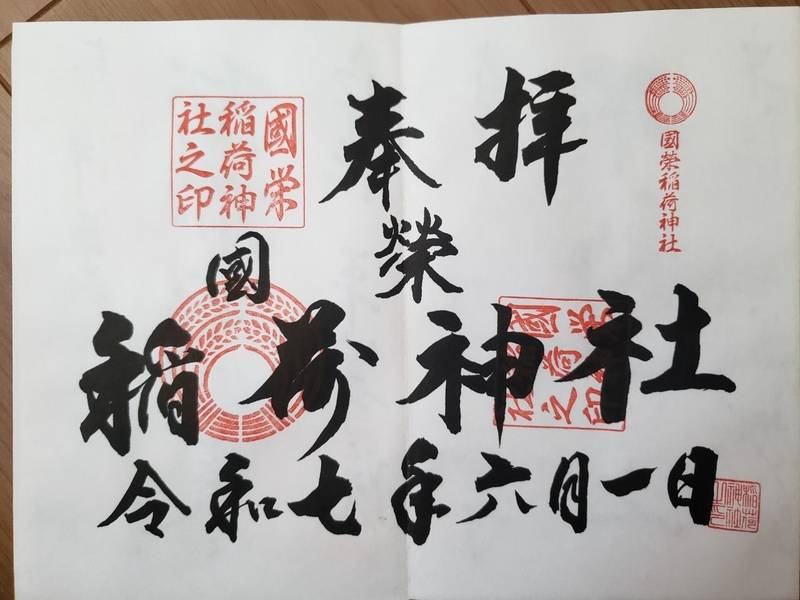 奉拝
國榮
稲荷神社
令和七年六月一日
國栄
稲荷神
社之印
國榮稲荷神社